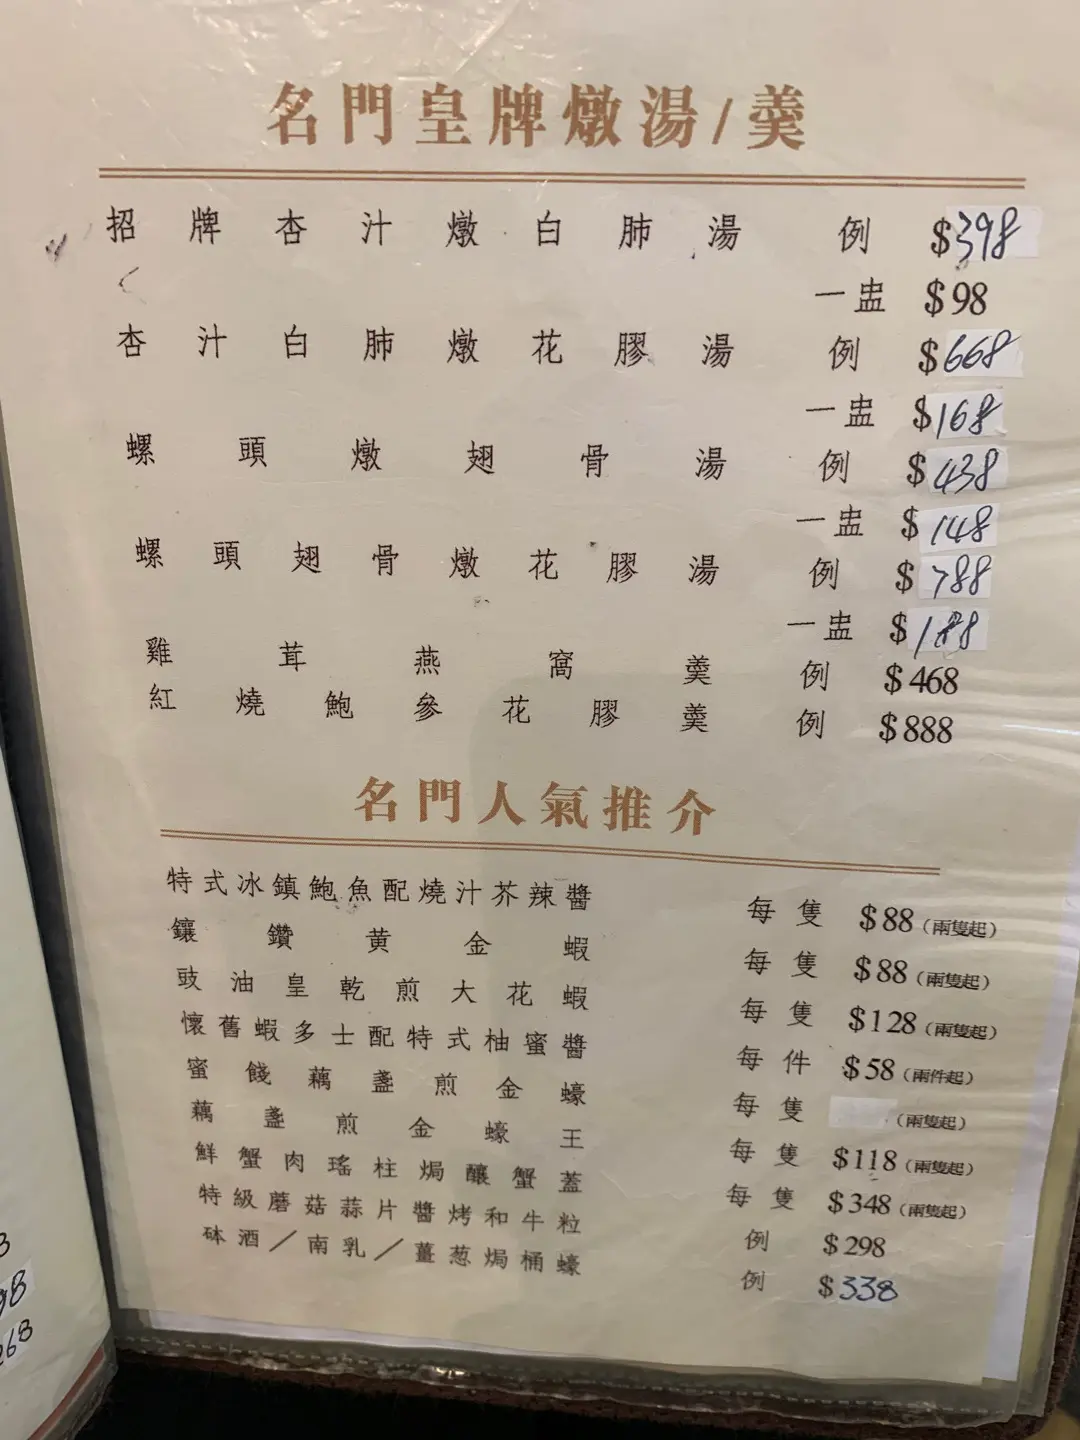 名門皇牌燉湯/羹
招牌杏汁燉白肺湯 例 $398
一盅 $98
杏汁白肺燉花膠湯 例 $668
一盅 $168
螺頭燉翅骨湯 例 $438
一盅 $148
螺頭翅骨燉花膠湯 例 $788
一盅 $188
雞茸燕窩羹 例 $468
紅燒鮑參花膠羹 例 $888
名門人氣推介
特式冰鎮鮑魚配燒汁芥辣醬 每隻 $88(兩隻起)
鑲鑽黃金蝦 每隻 $88(兩隻起)
豉油皇乾煎大花蝦 每隻 $128(兩隻起)
懷舊蝦多士配特式柚蜜醬 每件 $58(兩件起)
蜜餞藕盞煎金蠔 每隻 (兩隻起)
藕盞煎金蠔王 每隻 $118(兩隻起)
鮮蟹肉瑤柱焗釀蟹蓋 每隻 $348(兩隻起)
特級蘑菇蒜片醬烤和牛粒 例 $298
砵酒／南乳／薑葱焗桶蠔 例 $338
98
268